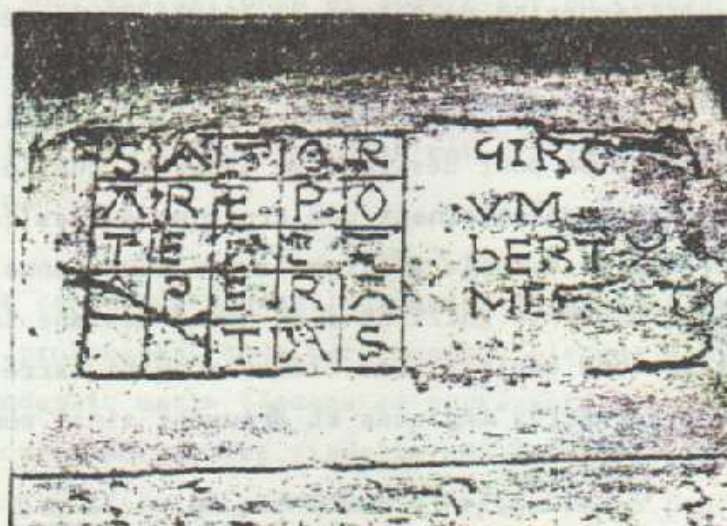 SATOR
AREPO
TE
ERA
TAS
qIRC
VM
bERT
ME